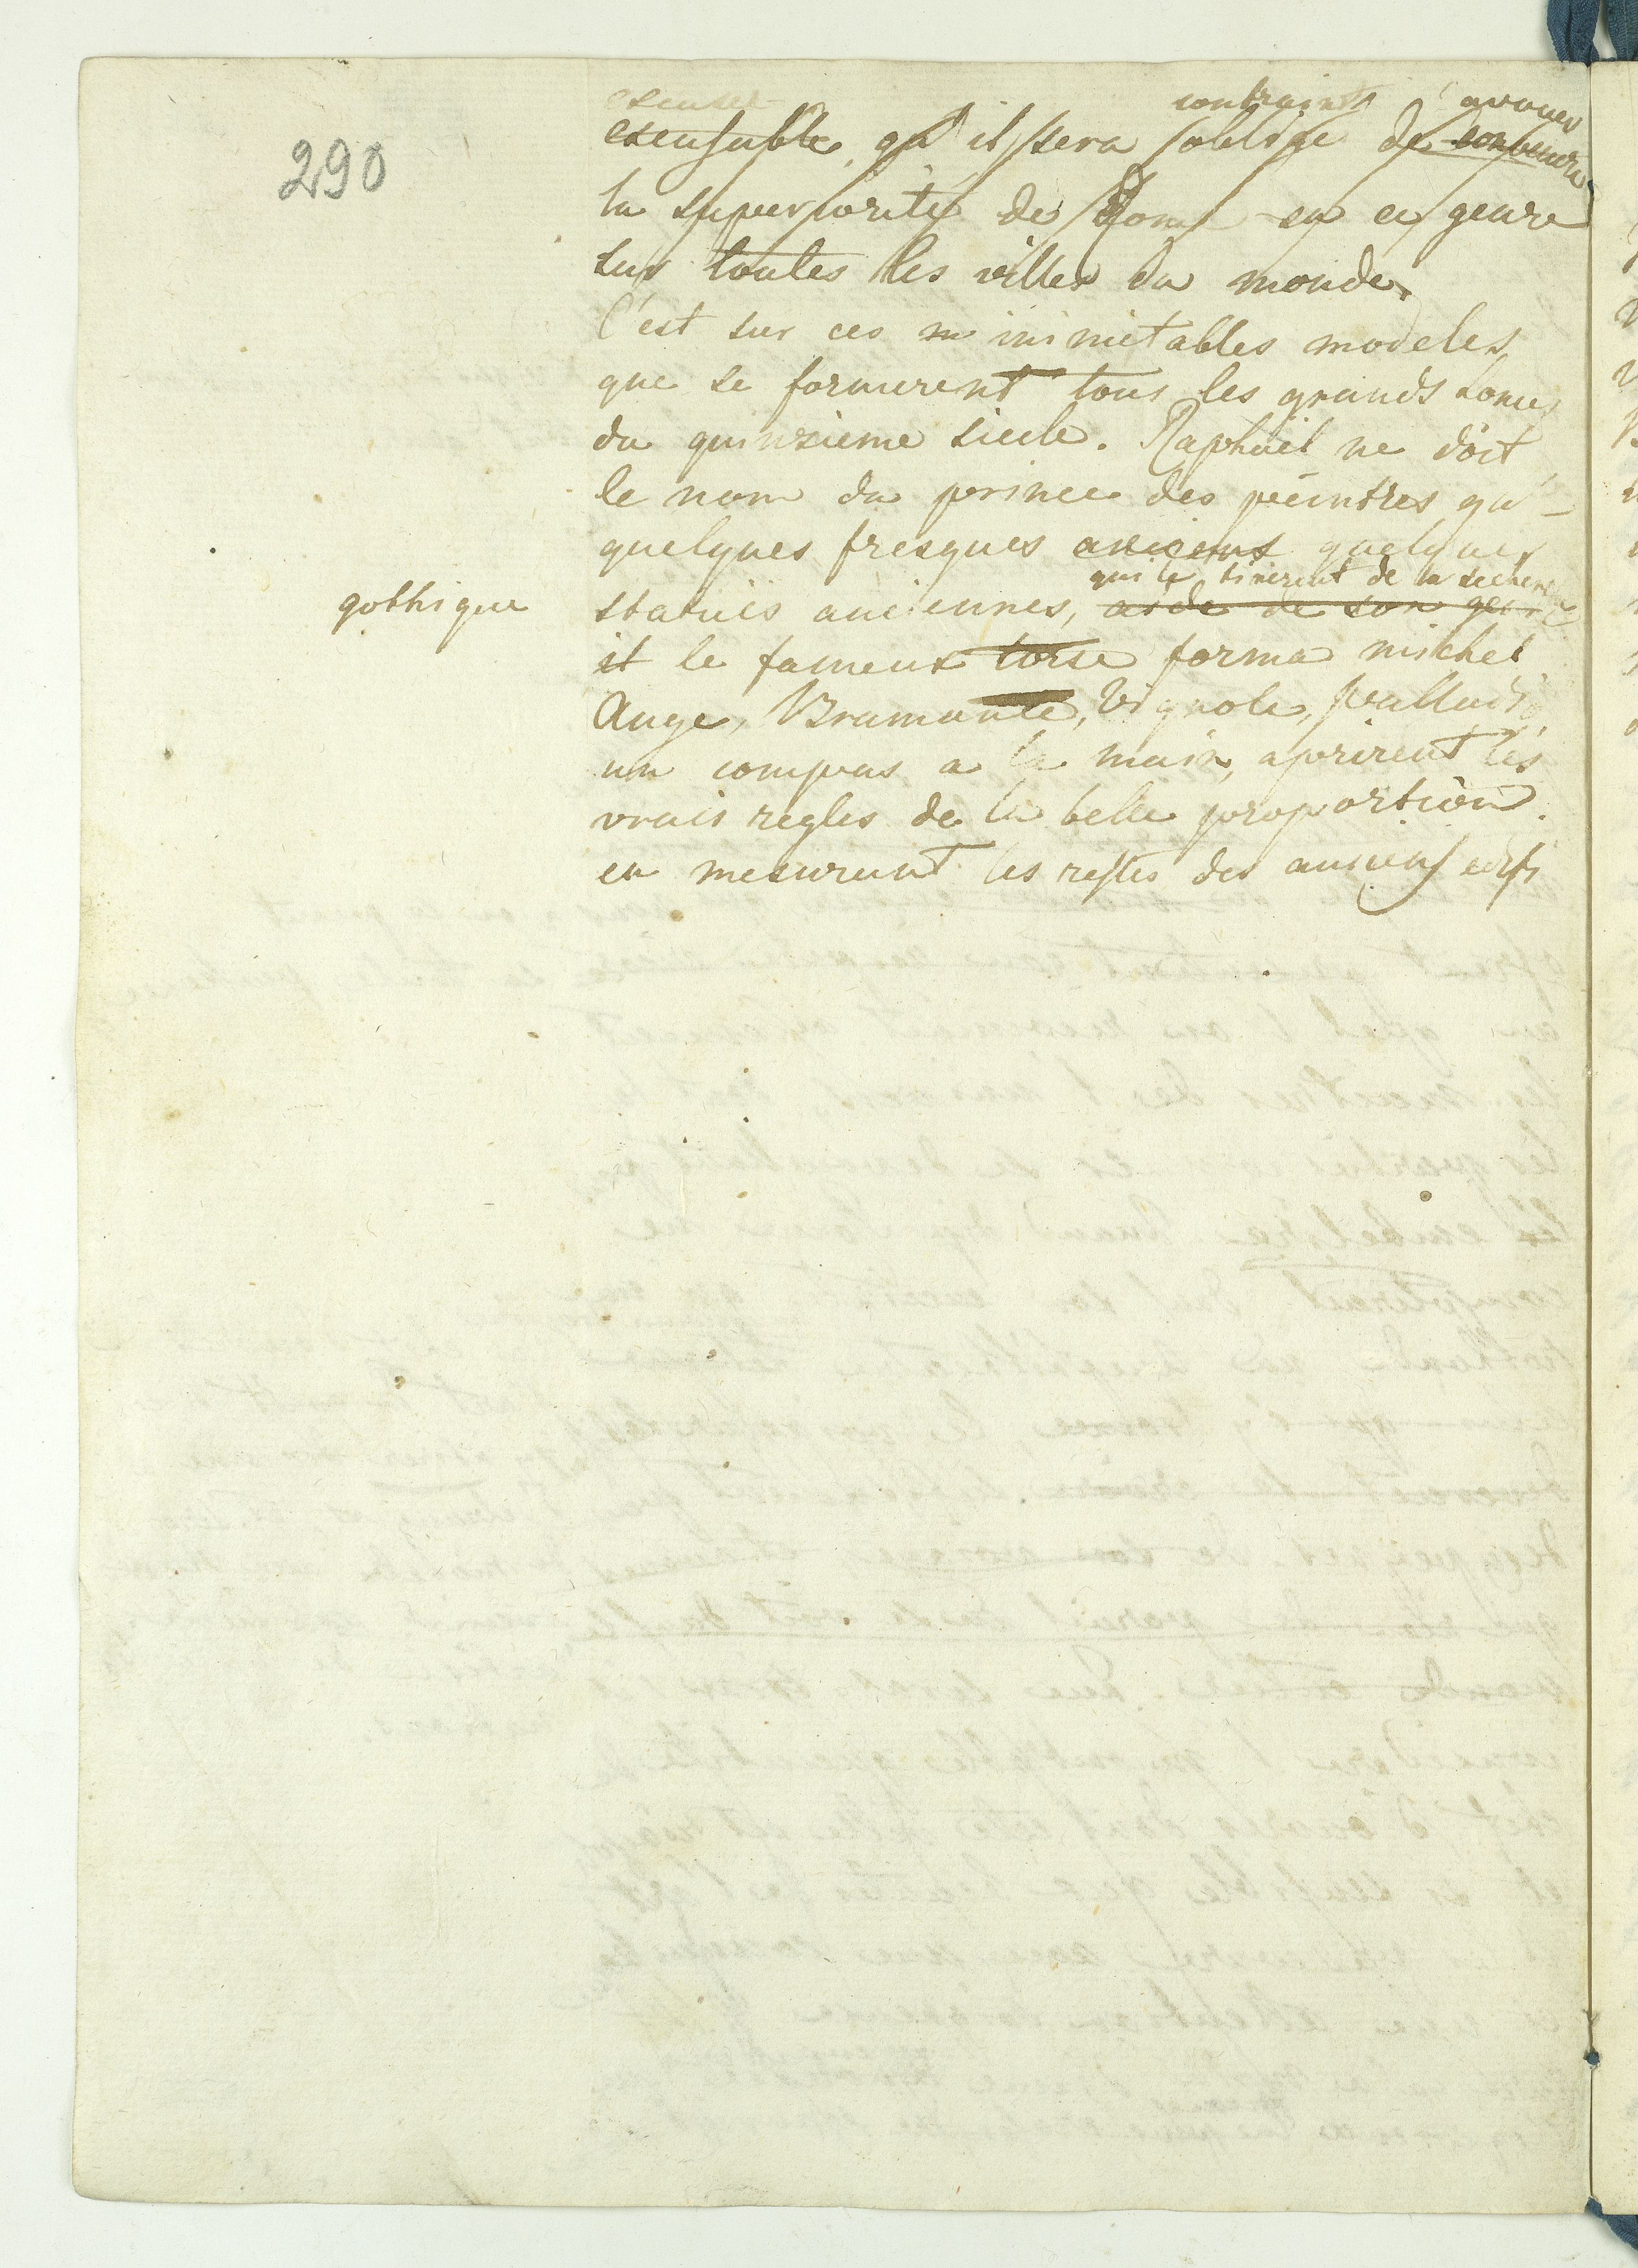 290
excuser contraint d'avouer
excusable, qu'il sera obligé de convenir
la superiorité de Rome en ce genre
sur toutes les villes du monde.
C'est sur ces inimitables modeles,
que se formerent tous les grands homes
du quinzieme siecle. Raphaël ne doit
le nom du prince des peintres qu'
quelques fresques anciens quelques
qui le tirerent de la secheresse
gothique
statuës anciennes, aidé de son genie
et le fameux torse forma michel
Ange, Bramante, Vignole, palladio
un compas a la main, aprirent les
vrais regles de la belle proportion.
en mesurent les restes des anciens edifi